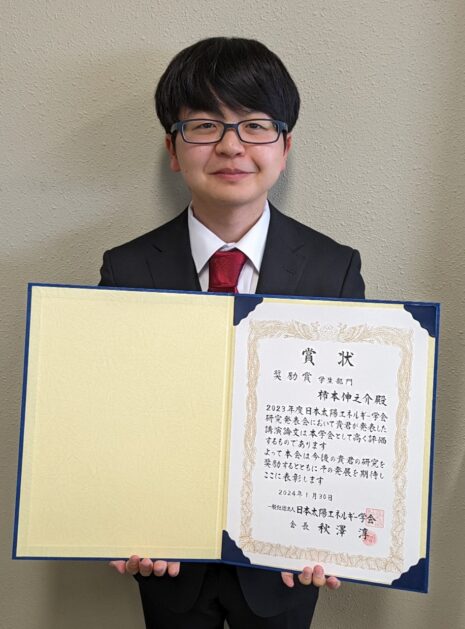 賞状
奨励賞 学生部門
柿本伸之介殿
2023年度日本太陽エネルギー学会
研究発表会において貴君が発表した
講演論文は本学会として高く評価
するものであります
よって本会は今後の貴君の研究を
奨励するとともにその発展を期待し
ここに表彰します
2024年1月30日
一般社団法人日本太陽エネルギー学会
会長 秋澤淳